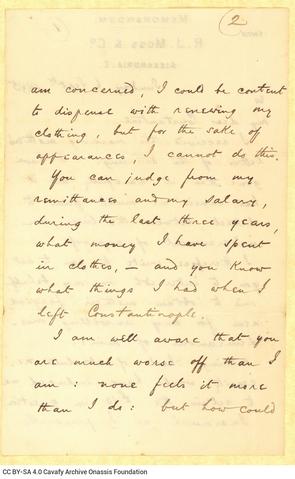 (2
MEMORANDUM.
R. J. Moss & Co.
ALEXANDRIA
am concerned, I could be content
to dispense with renewing my
clothing, but for the sake of
appearances, I cannot do this.
You can judge from my
remittances and my salary,
during the last three years,
what money I have spent
in clothes, — and you know
what things I had when I
left Constantinople.
I am well aware that you
are much worse off than I
am: none feels it more
than I do: but how could
CC BY-SA 4.0 Cavafy Archive Onassis Foundation